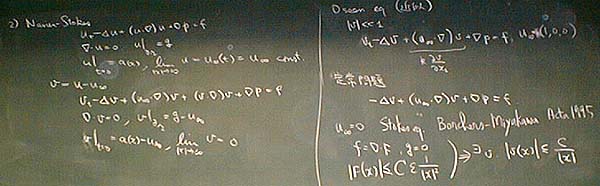 2) Navier-Stokes
u_t - Δu + (u·∇)u + ∇p = f
∇·u = 0 u|_{∂Ω} = g
u|_{t=0} = a(x), lim_{|x|→∞} u = u_∞(t) = u_∞ const.
v = u - u_∞
v_t - Δv + (u_∞·∇)v + (v·∇)v + ∇p = f
∇·v = 0, v|_{∂Ω} = g - u_∞
v|_{t=0} = a(x) - u_∞, lim_{|x|→∞} v = 0
Oseen eq
|v| << 1
v_t - Δv + (u_∞·∇)v + ∇p = f, u_∞ (1,0,0)
k ∂v/∂x_1
定常問題
-Δv + (u_∞·∇)v + ∇p = f
u_∞ = 0 Stokes eq Borchers-Miyakawa Acta 1995
f = ∇·F, g = 0
|F(x)| ≤ C ε 1/|x|² ) ⇒ ∃ v. |v(x)| ≤ C/|x|